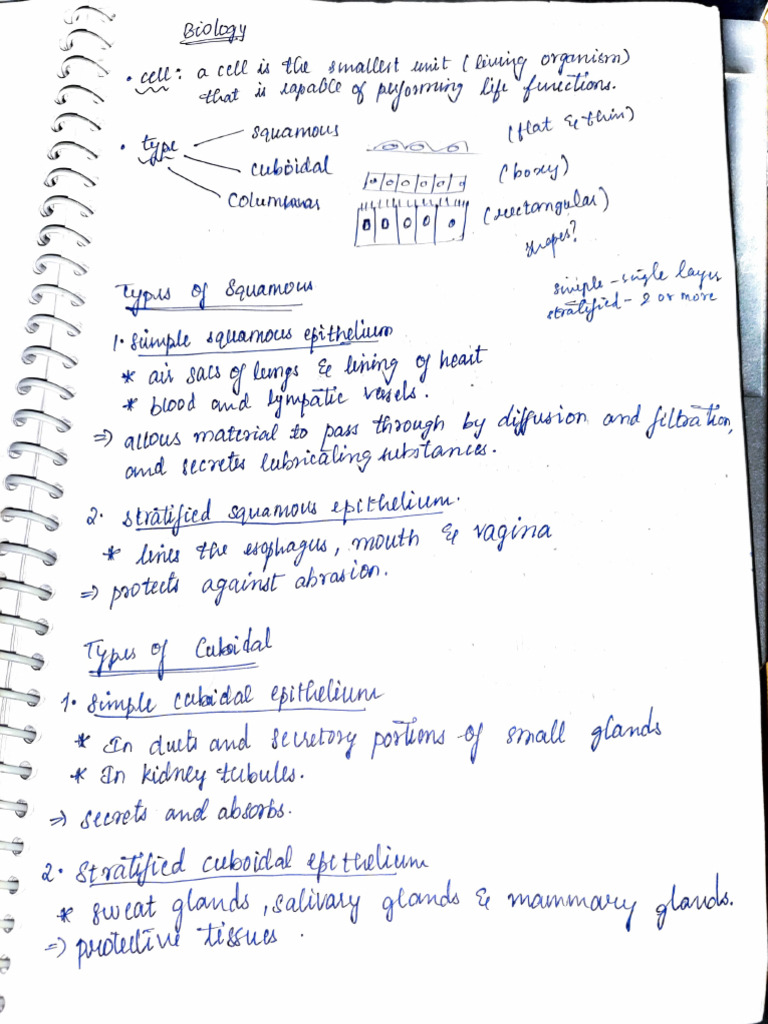 Biology
• cell: a cell is the smallest unit (living organism)
that is capable of performing life functions.
• type
squamous (flat & thin)
cuboidal (boxy)
Columnar (rectangular)
shapes?
simple - single layer
stratified - 2 or more
Types of Squamous
1. Simple squamous epithelium
* air sacs of lungs & lining of heart
* blood and lympatic vessels.
⇒ allows material to pass through by diffusion and filtration,
and secretes lubricating substances.
2. Stratified squamous epithelium.
* lines the esophagus, mouth & vagina
⇒ protects against abrasion.
Types of Cuboidal
1. Simple cuboidal epithelium
* In ducts and secretory portions of small glands
* In kidney tubules.
⇒ secrets and absorbs.
2. Stratified cuboidal epithelium
* sweat glands, salivary glands & mammary glands.
⇒ protective tissues.